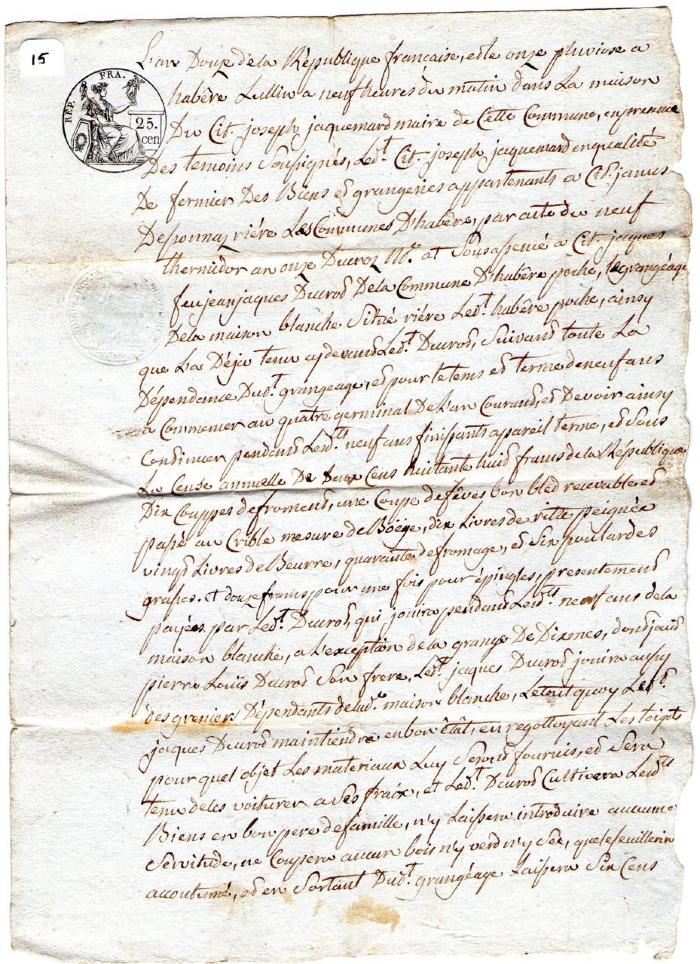 15
RÉP. FRA.
25.
cen
L'an Douze de la République française, et le onze pluviose a
habère Lullin a neuf heures du matin dans La maison
Du Cit. joseph jaquemard maire de Cette Commune, en presence
Des temoins Soussignés, Led.t Cit. joseph jaquemard en qualité
De fermier Des Biens et grangeries appartenants a Cit. janus
De riére Les Communes D'habère, par acte du neuf
thermidor an onze Ducroz N.re at Sousassencé a Cit. jacques
feu jean jaques Ducrod De la Commune D'habère poche, le grangéage
De la maison blanche Situé riére Led.t habère poche, ainsy
que L'a Déja tenu cy devant Led.t Ducrod, Suivant toute La
Dépendance Dud.t grangeage, et pour le tems et terme de neuf ans
a Commencer au quatre germinal De l'an Courant, et Devoir ainsy
Continuer pendant Lesd.ts neuf ans finissants a pareil terme, et Sous
La Cense annuelle De Deux Cens huitante huit francs de la République
Dix Couppes de froment, une Coupe de fêves bon bled recevable et
passé au Crible mesure de Boëge, dix Livres de ritte peignée
vingt Livres de Beurre, quarante de fromage, et Six poulardes
grasses. et douze francs pour une fois pour épingles, presentement
payées par Led.t Ducrod, qui jouira pendant Lesd.ts neuf ans de la
maison blanche, a L'exception de la grange De Dixmes, dont jouit
pierre Loüis Ducrod Son frere, Led.t jacques Ducrod jouira aussy
des greniers Dépendants de lad.e maison blanche, Le tout quoy Led.t
jacques Ducrod maintiendra en bon Êtat, en regottoyant Les toigts
pour quel objet Les materiaux Luy Seront fournis, et Sera
tenu de les voiturer a Ses fraix, et Led.t Ducrod Cultivera Lesd.ts
Biens en bon pere de famille, n'y Laissera introduire aucune
Servitude, ne Coupera aucun bois n'y verd n'y Sec, que le feuillerin
accoutumé, et en Sortant Dud.t grangéage Laissera Six Cens